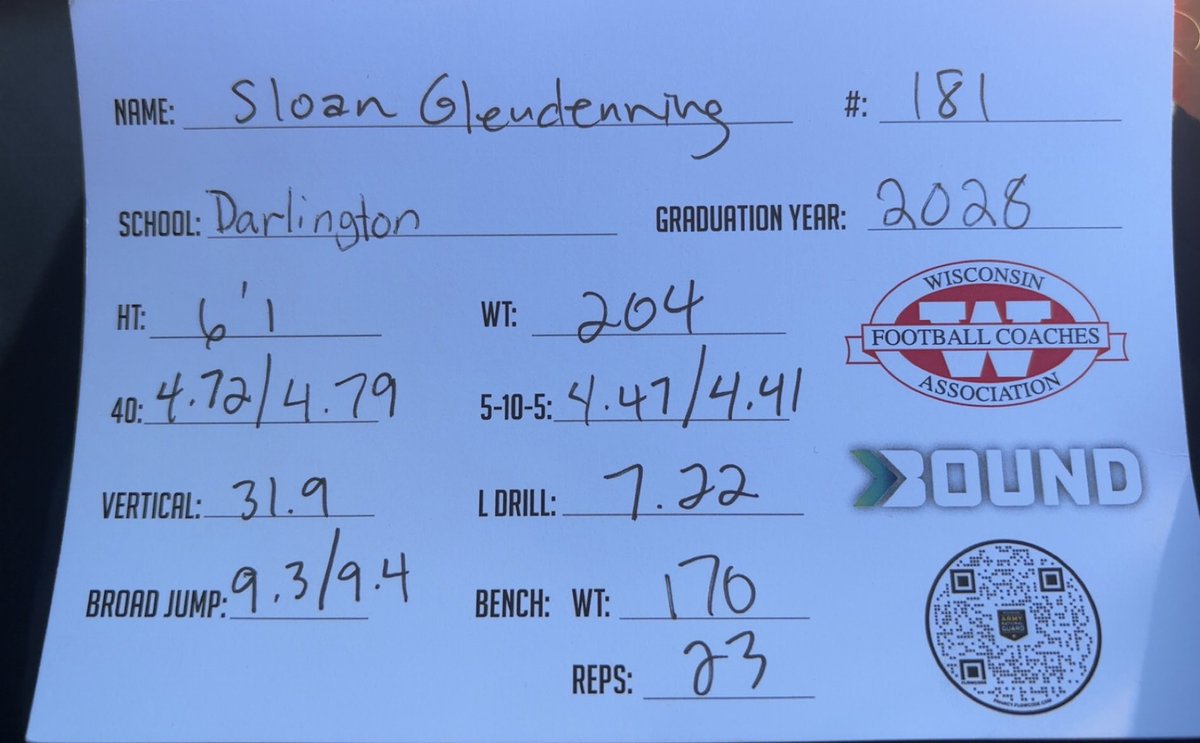 NAME: Sloan Glendenning #: 181
SCHOOL: Darlington GRADUATION YEAR: 2028
HT: 6'1 WT: 204
WISCONSIN
FOOTBALL COACHES
ASSOCIATION
40: 4.72/4.79 5-10-5: 4.47/4.41
VERTICAL: 31.9 L DRILL: 7.22
BOUND
BROAD JUMP: 9.3/9.4 BENCH: WT: 170
REPS: 23
ARMY
NATIONAL
GUARD